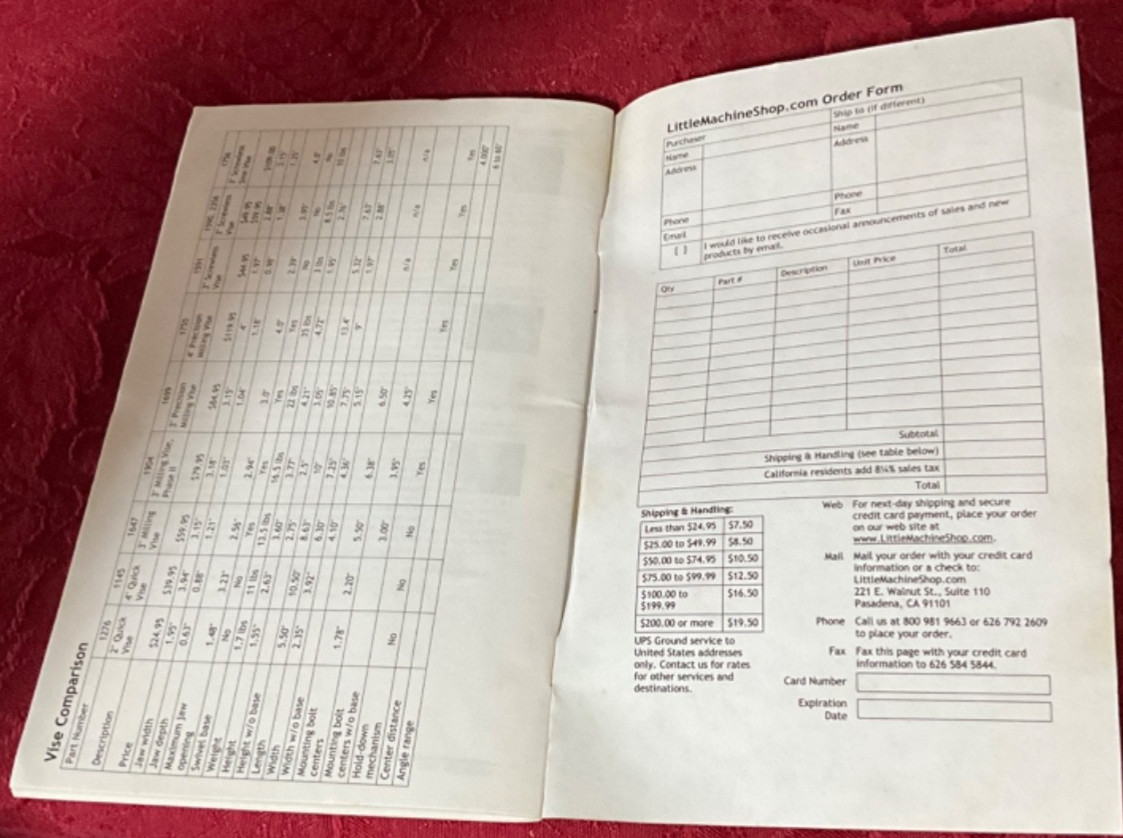 Vise Comparison
Part Number 1276 1145 1647 1904 1699 1755 1591
Description 2" Quick Vise 4" Quick Vise 3" Milling Vise 3" Milling Vise, Phase II 3" Precision Milling Vise 4" Precision Milling Vise
Price $24.95 $39.95 $59.95 $79.95 $84.95 $119.95 $44.95
Jaw width 1.95" 3.94" 3.15" 3.18" 3.15" 4"
Jaw depth 0.63" 0.88" 1.21" 1.03" 1.04" 1.18"
Maximum jaw
opening 1.48" 3.23" 2.56" 2.94" 3.0" 4.0"
Swivel base No No Yes Yes Yes Yes No
Weight 1.7 lbs 11 lbs 13.5 lbs 16.5 lbs 22 lbs 35 lbs 3 lbs
Height 1.55" 2.63" 3.60" 3.77" 4.21" 4.72" 1.95"
Height w/o base 2.75" 2.5" 3.05"
Length 5.50" 10.50" 8.63" 10" 10.85" 13.4"
Width 2.35" 3.92" 6.30" 7.25" 7.75" 9"
Width w/o base 4.10" 4.36" 5.15"
Mounting bolt
centers 1.78" 2.20" 5.50" 6.38" 6.50"
Mounting bolt
centers w/o base 3.00" 3.95" 4.25"
Hold-down
mechanism No No No Yes Yes Yes Yes Yes Yes
Center distance 4.000"
Angle range
LittleMachineShop.com Order Form
Purchaser Ship to (if different)
Name Name
Address Address
Phone Phone
Email Fax
[ ] I would like to receive occasional announcements of sales and new
products by email.
Qty Part # Description Unit Price Total
Subtotal
Shipping & Handling (see table below)
California residents add 8¼% sales tax
Total
Shipping & Handling:
Less than $24.95 $7.50
$25.00 to $49.99 $8.50
$50.00 to $74.95 $10.50
$75.00 to $99.99 $12.50
$100.00 to $16.50
$199.99
$200.00 or more $19.50
UPS Ground service to
United States addresses
only. Contact us for rates
for other services and
destinations.
Web For next-day shipping and secure
credit card payment, place your order
on our web site at
www.LittleMachineShop.com.
Mail Mail your order with your credit card
information or a check to:
LittleMachineShop.com
221 E. Walnut St., Suite 110
Pasadena, CA 91101
Phone Call us at 800 981 9663 or 626 792 2609
to place your order.
Fax Fax this page with your credit card
information to 626 584 5844.
Card Number
Expiration
Date